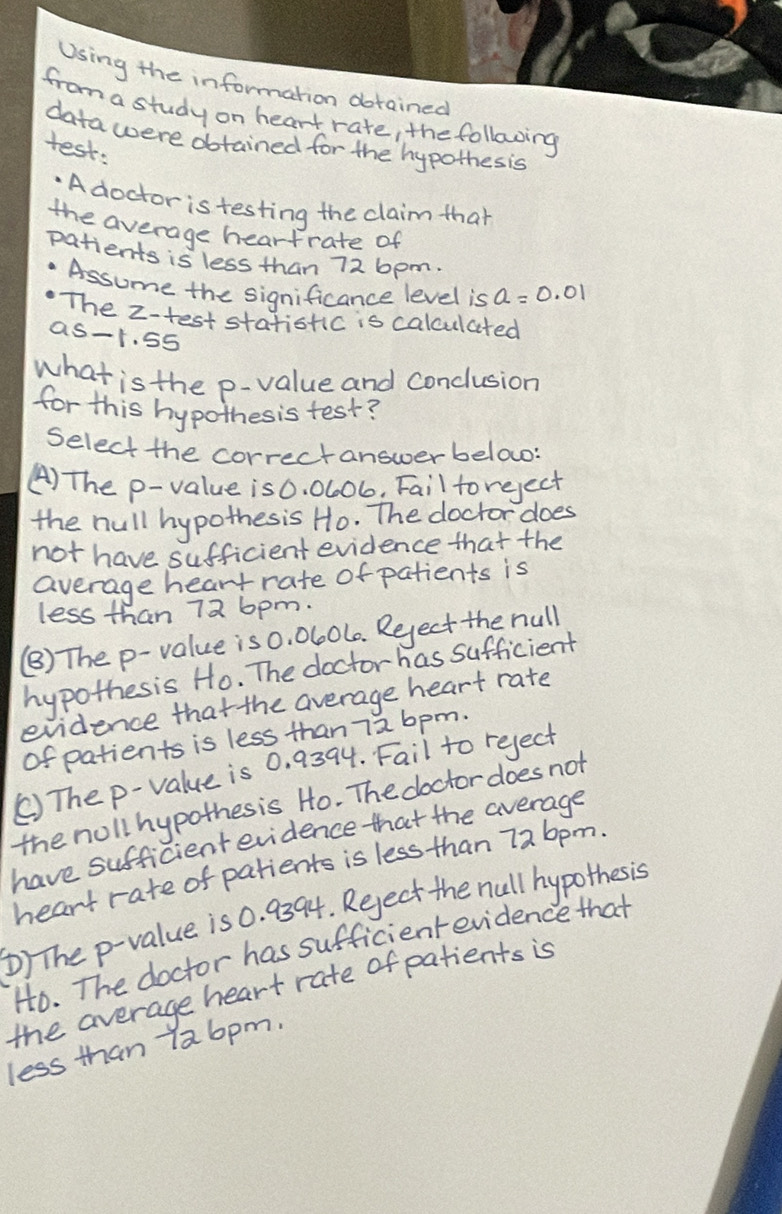 Using the information obtained
from a study on heart rate, the following
data were obtained for the hypothesis
test:
• A doctor is testing the claim that
the average heart rate of
patients is less than 72 bpm.
• Assume the significance level is a = 0.01
• The z-test statistic is calculated
as -1.55
what is the p-value and conclusion
for this hypothesis test?
Select the correct answer below:
(A) The p-value is 0.0606. Fail to reject
the null hypothesis Ho. The doctor does
not have sufficient evidence that the
average heart rate of patients is
less than 72 bpm.
(B) The p-value is 0.0606. Reject the null
hypothesis Ho. The doctor has sufficient
evidence that the average heart rate
of patients is less than 72 bpm.
(C) The p-value is 0.9394. Fail to reject
the null hypothesis Ho. The doctor does not
have sufficient evidence that the average
heart rate of patients is less than 72 bpm.
(D) The p-value is 0.9394. Reject the null hypothesis
Ho. The doctor has sufficient evidence that
the average heart rate of patients is
less than 72 bpm.